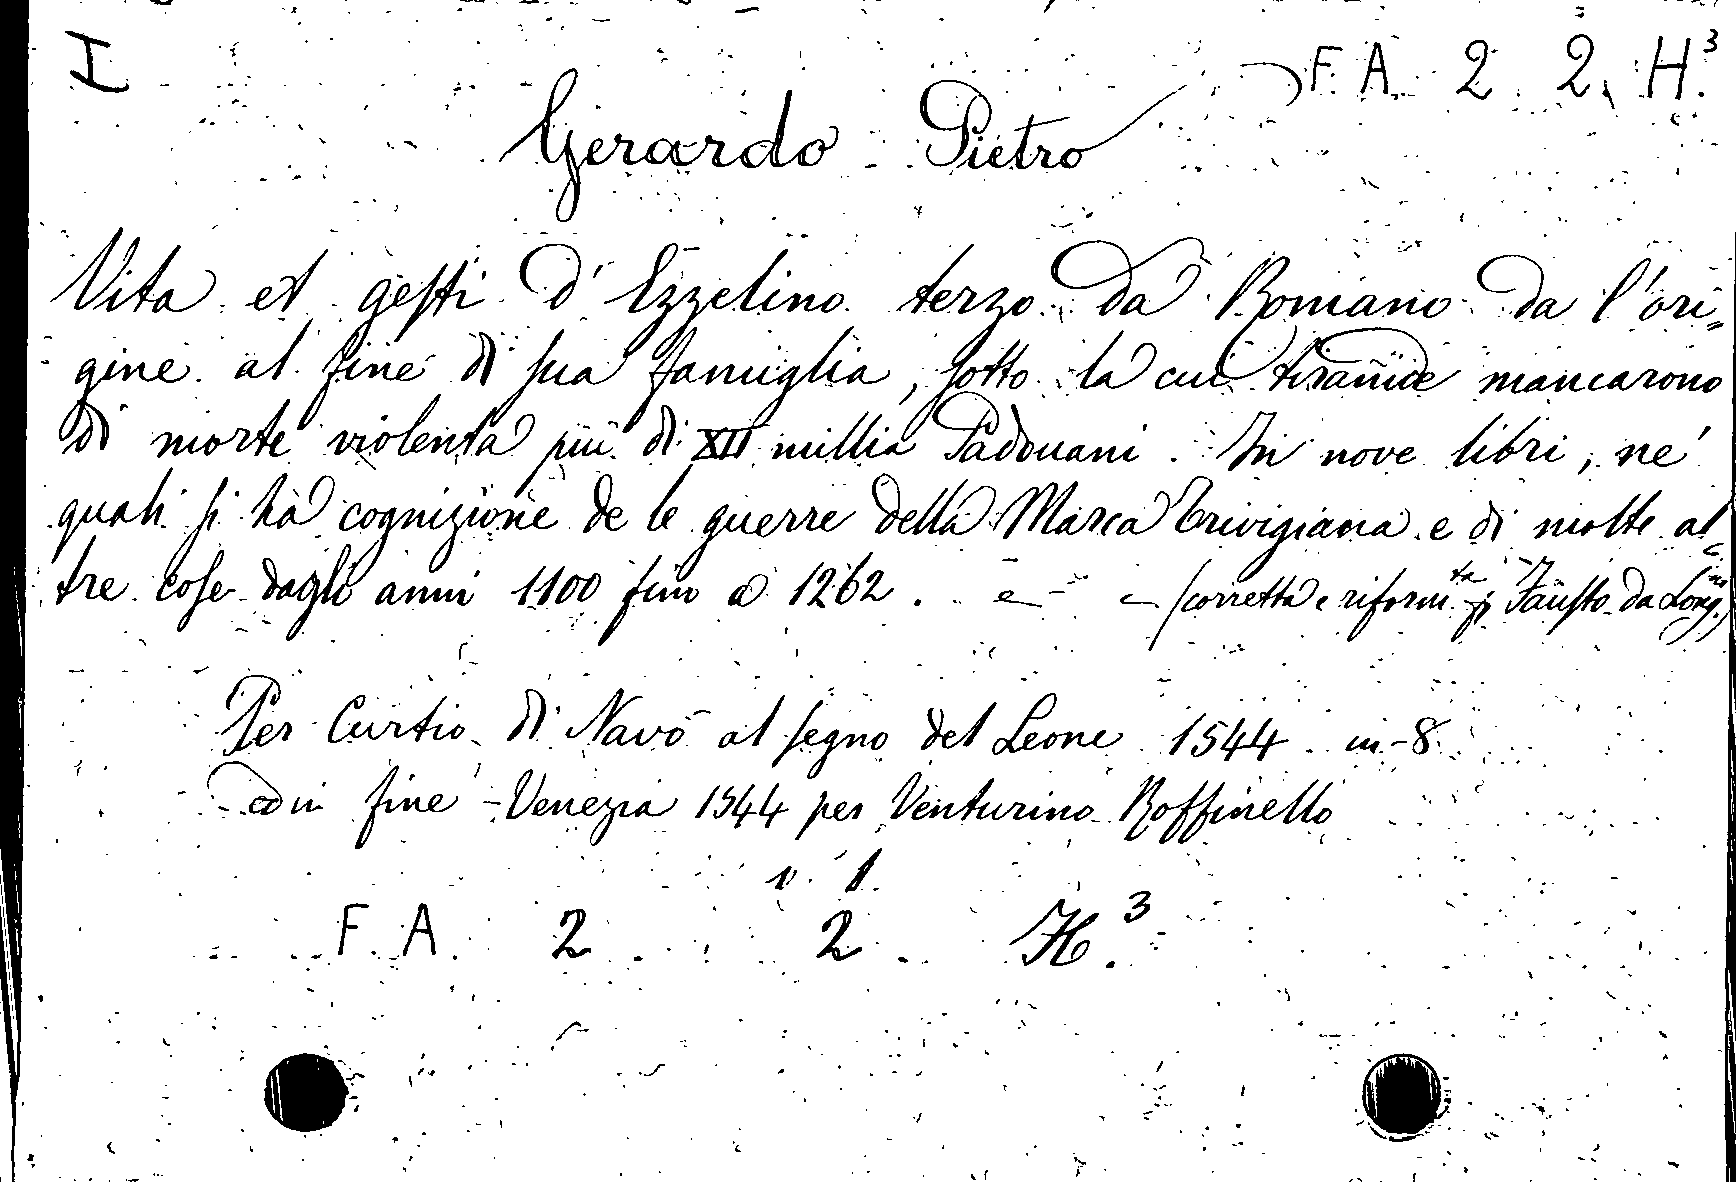 I
F. A. 2. 2. H.³
Gerardo Pietro
Vita et gesti d'Ezzelino terzo da Romano da l'ori=
gine al fine di sua famiglia, sotto la cui tirannide mancarono
di morte violenta più di XII millia Padouani. In nove libri, ne'
quali si ha cognizione de le guerre della Marca Trivigiana e di molte al=
tre cose dagli anni 1100 fino a 1262. (corretta e riform.ta p Fausto da Long.no)
Per Curtio di Navò al segno del Leone 1544. in-8.
ed in fine - Venezia 1544 per Venturino Roffinello
v. 1.
F. A. 2. 2. H.³